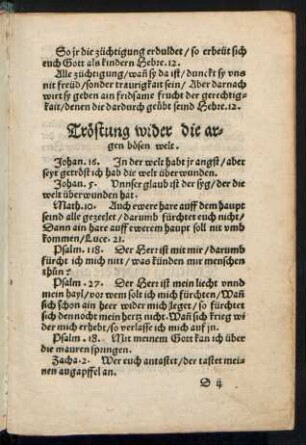 So jr die züchtigung erduldet / so erbeüt sich
euch Gott als kindern Hebre.12.
Alle züchtigung / wañ sy da ist / dunckt sy vns
nit freüd / sonder traurigkait sein / Aber darnach
wirt sy geben ain fridsame frucht der gerechtig-
kait / denen die dardurch geübt seind Hebre.12.
Tröstung wider die ar-
gen bösen welt.
Johan.16. In der welt habt jr angst / aber
seyt getröst ich hab die welt überwunden.
Johan.5. Vnnser glaub ist der syg / der die
welt überwunden hat.
Math.10. Auch ewere hare auff dem haupt
seind alle gezeelet / darumb fürchtet euch nicht /
Dann ain hare auff ewerem haupt soll nit vmb
kommen / Luce.21.
Psalm.118. Der Herr ist mit mir / darumb
fürcht ich mich nitt / was künden mir menschen
thün?
Psalm.27. Der Herr ist mein liecht vnnd
mein hayl / vor wem solt ich mich fürchten / Wañ
sich schon ain heer wider mich leget / so fürchtet
sich dennocht mein hertz nicht. Wañ sich krieg wi
der mich erhebt / so verlasse ich mich auff jn.
Psalm.18. Mit meinem Gott kan ich über
die mauren springen.
Zacha.2. Wer euch antastet / der tastet mei-
nen augapffel an.
D ij